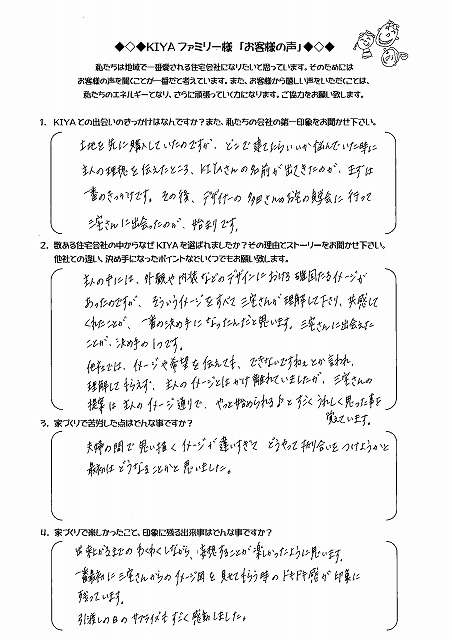 ◆◇◆KIYAファミリー様「お客様の声」◆◇◆
私たちは地域で一番愛される住宅会社になりたいと思っています。そのためには
お客様の声を聞くことが一番だと考えています。また、お客様から嬉しい声をいただくことは、
私たちのエネルギーとなり、さらに頑張っていく力になります。ご協力をお願い致します。
1．KIYAとの出会いのきっかけはなんですか？また、私たちの会社の第一印象をお聞かせ下さい。
土地を先に購入していたのですが、どこで建てたらいいか悩んでいた時に
主人の理想を伝えたところ、KIYAさんの名前が出てきたのが、まずは
一番のきっかけです。その後、デザイナーの多田さんのお宅の見学会に行って
三宅さんに出会ったのが、始まりです。
2．数ある住宅会社の中からなぜKIYAを選ばれましたか？その理由とストーリーをお聞かせ下さい。
他社との違い、決め手になったポイントなどいくつでもお願い致します。
主人の中には、外観や内装などのデザインにおける確固たるイメージが
あったのですが、そういうイメージをすべて三宅さんが理解して下り、共感して
くれたことが、一番の決め手になったんだと思います。三宅さんに出会えた
ことが、決め手の1つです。
他社では、イメージや希望を伝えても、できないですねぇとか言われ、
理解してもらえず、主人のイメージとはかけ離れていましたが、三宅さんの
提案は主人のイメージ通りで、やっと始められる♪とすごくうれしく思った事を
覚えています。
3．家づくりで苦労した点はどんな事ですか？
夫婦の間で思い描くイメージが違いすぎて どうやって折り合いをつけようかと
最初はどうなることかと思いました。
4．家づくりで楽しかったこと、印象に残る出来事はどんな事ですか？
出来上がるまでのわくわくしながら、妄想することが楽しかったように思います。
一番最初に三宅さんからのイメージ図を見せてもらう時のドキドキ感が印象に
残っています。
引渡しの日のサプライズもすごく感動しました。